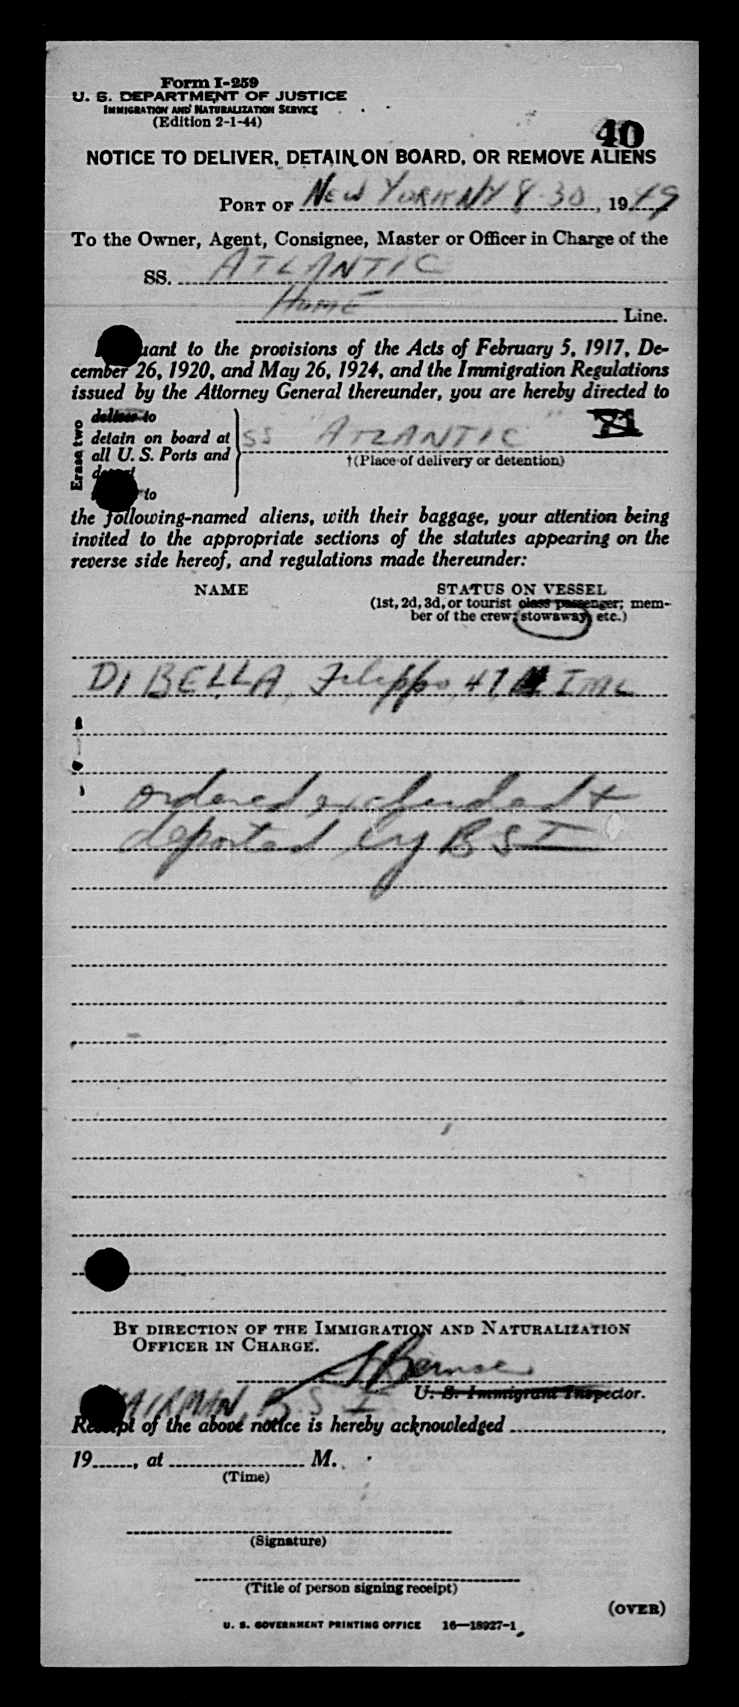 Form I-259
U. S. DEPARTMENT OF JUSTICE
IMMIGRATION AND NATURALIZATION SERVICE
(Edition 2-1-44)
40
NOTICE TO DELIVER, DETAIN ON BOARD, OR REMOVE ALIENS
PORT OF New York NY 8-30, 1949
To the Owner, Agent, Consignee, Master or Officer in Charge of the
SS. ATLANTIC
Home Line.
uant to the provisions of the Acts of February 5, 1917, De-
cember 26, 1920, and May 26, 1924, and the Immigration Regulations
issued by the Attorney General thereunder, you are hereby directed to
Erase two
deliver to
detain on board at SS "ATLANTIC"
all U. S. Ports and †(Place of delivery or detention)
to
the following-named aliens, with their baggage, your attention being
invited to the appropriate sections of the statutes appearing on the
reverse side hereof, and regulations made thereunder:
NAME STATUS ON VESSEL
(1st, 2d, 3d, or tourist class passenger; mem-
ber of the crew; stowaway, etc.)
DI BELLA, Filippo, 47, M
ordered excluded +
deported by BSI
BY DIRECTION OF THE IMMIGRATION AND NATURALIZATION
OFFICER IN CHARGE.
U. S. Immigrant Inspector.
AIRMAN, B. S I
Receipt of the above notice is hereby acknowledged ,
19 , at M.
(Time)
(Signature)
(Title of person signing receipt)
(OVER)
U. S. GOVERNMENT PRINTING OFFICE 16—18927-1